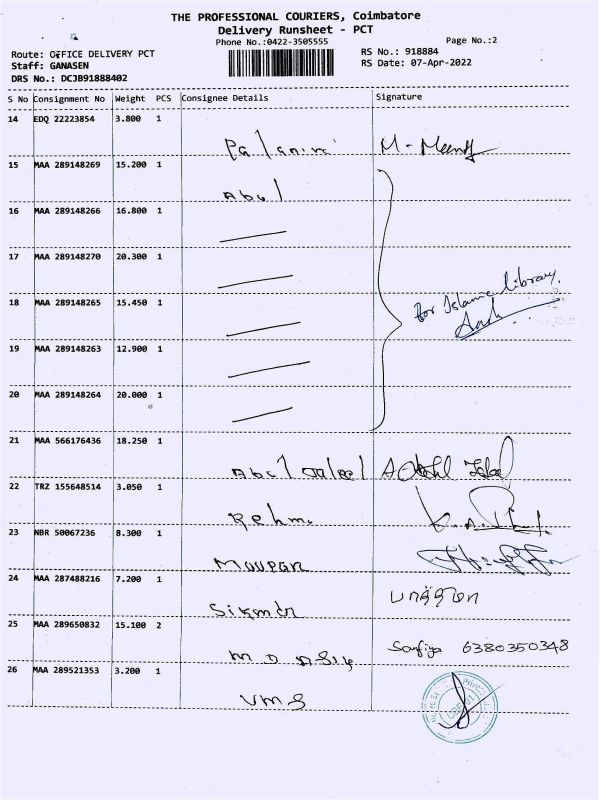 THE PROFESSIONAL COURIERS, Coimbatore
Delivery Runsheet - PCT
Phone No.:0422-3505555
Page No.:2
Route: OFFICE DELIVERY PCT
RS No.: 918884
Staff: GANASEN
RS Date: 07-Apr-2022
DRS No.: DCJB91888402
S No Consignment No Weight PCS Consignee Details Signature
14 EDQ 22223854 3.800 1
15 MAA 289148269 15.200 1
Abul
16 MAA 289148266 16.800 1
17 MAA 289148270 20.300 1
for Islamic library
18 MAA 289148265 15.450 1
19 MAA 289148263 12.900 1
20 MAA 289148264 20.000 1
21 MAA 566176436 18.250 1
Abul
22 TRZ 155648514 3.050 1
23 NBR 50067236 8.300 1
24 MAA 287488216 7.200 1
25 MAA 289650832 15.100 2
6380350348
26 MAA 289521353 3.200 1
VMS